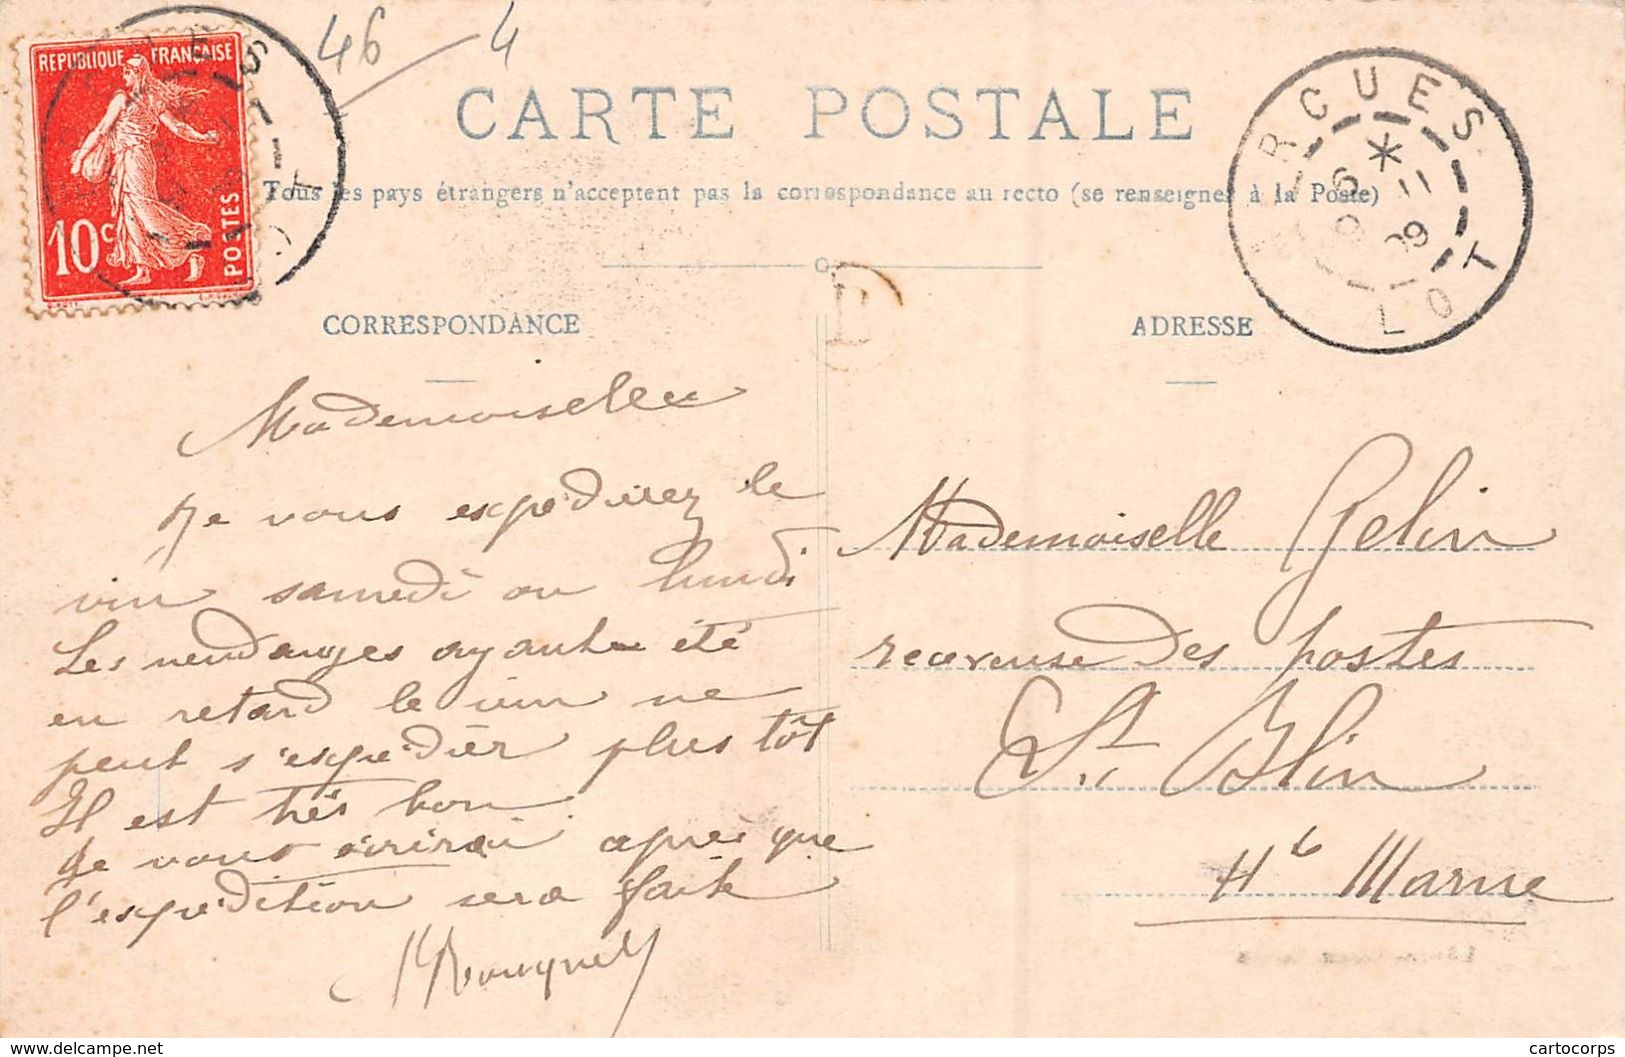 46 4
REPUBLIQUE FRANÇAISE
10c
POSTES
CARTE POSTALE
RCUES
*
6 11
09
LOT
Tous les pays étrangers n'acceptent pas la correspondance au recto (se renseigner à la Poste)
CORRESPONDANCE
ADRESSE
Mademoiselle
Je vous expedirez le
vin samedi ou lundi
Les vendanges ayante été
en retard le vin ne
peut s'expédier plus tôt
Il est très bon
Je vous ecrirai apres que
l'expédition sera faite
Mademoiselle Gelin
receveuse des postes
St Blin
Hte Marne
cartocorps